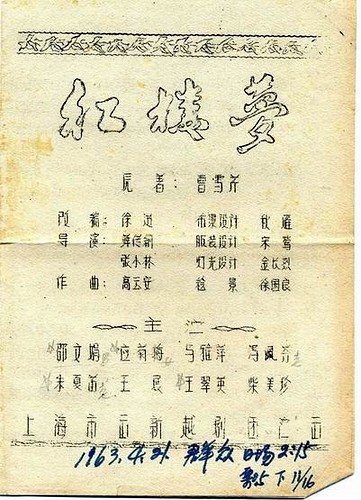 红楼梦
原著：曹雪芹
改编：徐进 布景设计 秋雁
导演： 服装设计 宋
张小林 灯光设计 金长烈
作曲：高玉安 绘景 徐国良
主演
邵文娟 应菊梅 马雅萍 冯佩芬
朱夏苗 王辰 王翠英 柴美珍
上海市出新越剧团演出
1963.4.21 群众 日场 2:15
票 5 下 11/16